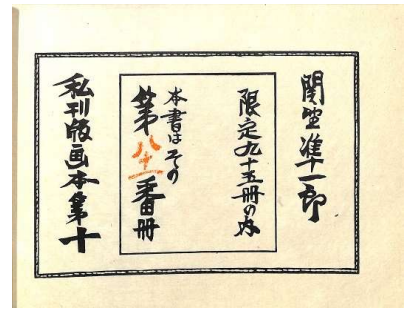 関野凖一郎
限定九十五冊の内
本書はその
第八十一番冊
私刊版画本第十